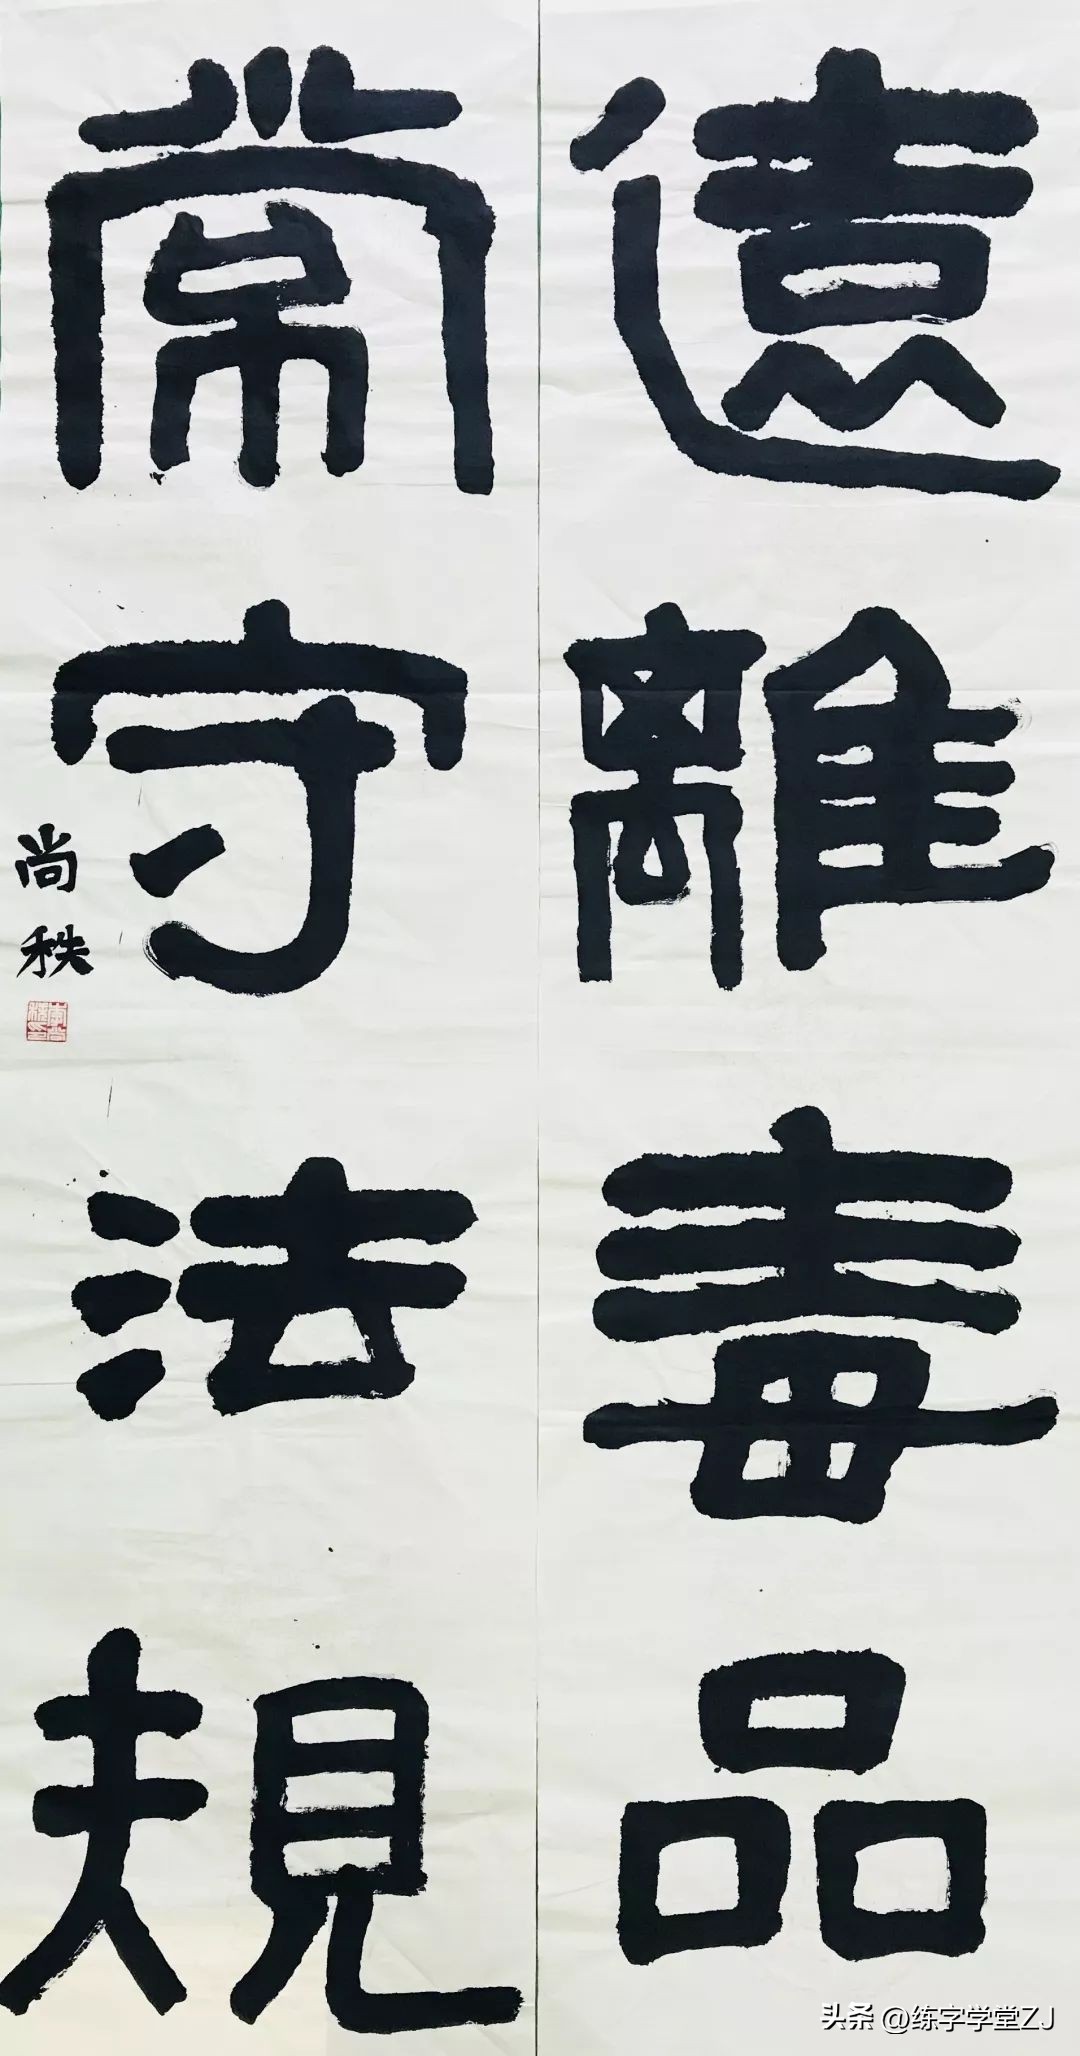 遠離毒品
常守法規
尚秩
头条 @练字学堂ZJ